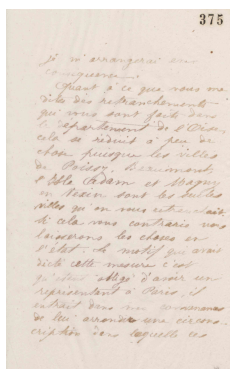 375
je m'arrangerai en
conséquence.
Quant à ce que vous me
dites des retranchements
qui vous sont faits dans
le département de l'Oise,
cela se réduit à peu de
chose puisque les villes
de Poissy, Beaumont
l'Isle Adam et Magny
en Vexin sont les seules
villes qu'on vous retranchait
Si cela vous contrarie nous
laisserons les choses en
l'état. Le motif qui avait
dicté cette mesure c'est
qu'étant obligé d'avoir un
représentant à Paris, il
entrait dans mes
de lui accorder une circons-
cription dans laquelle ces